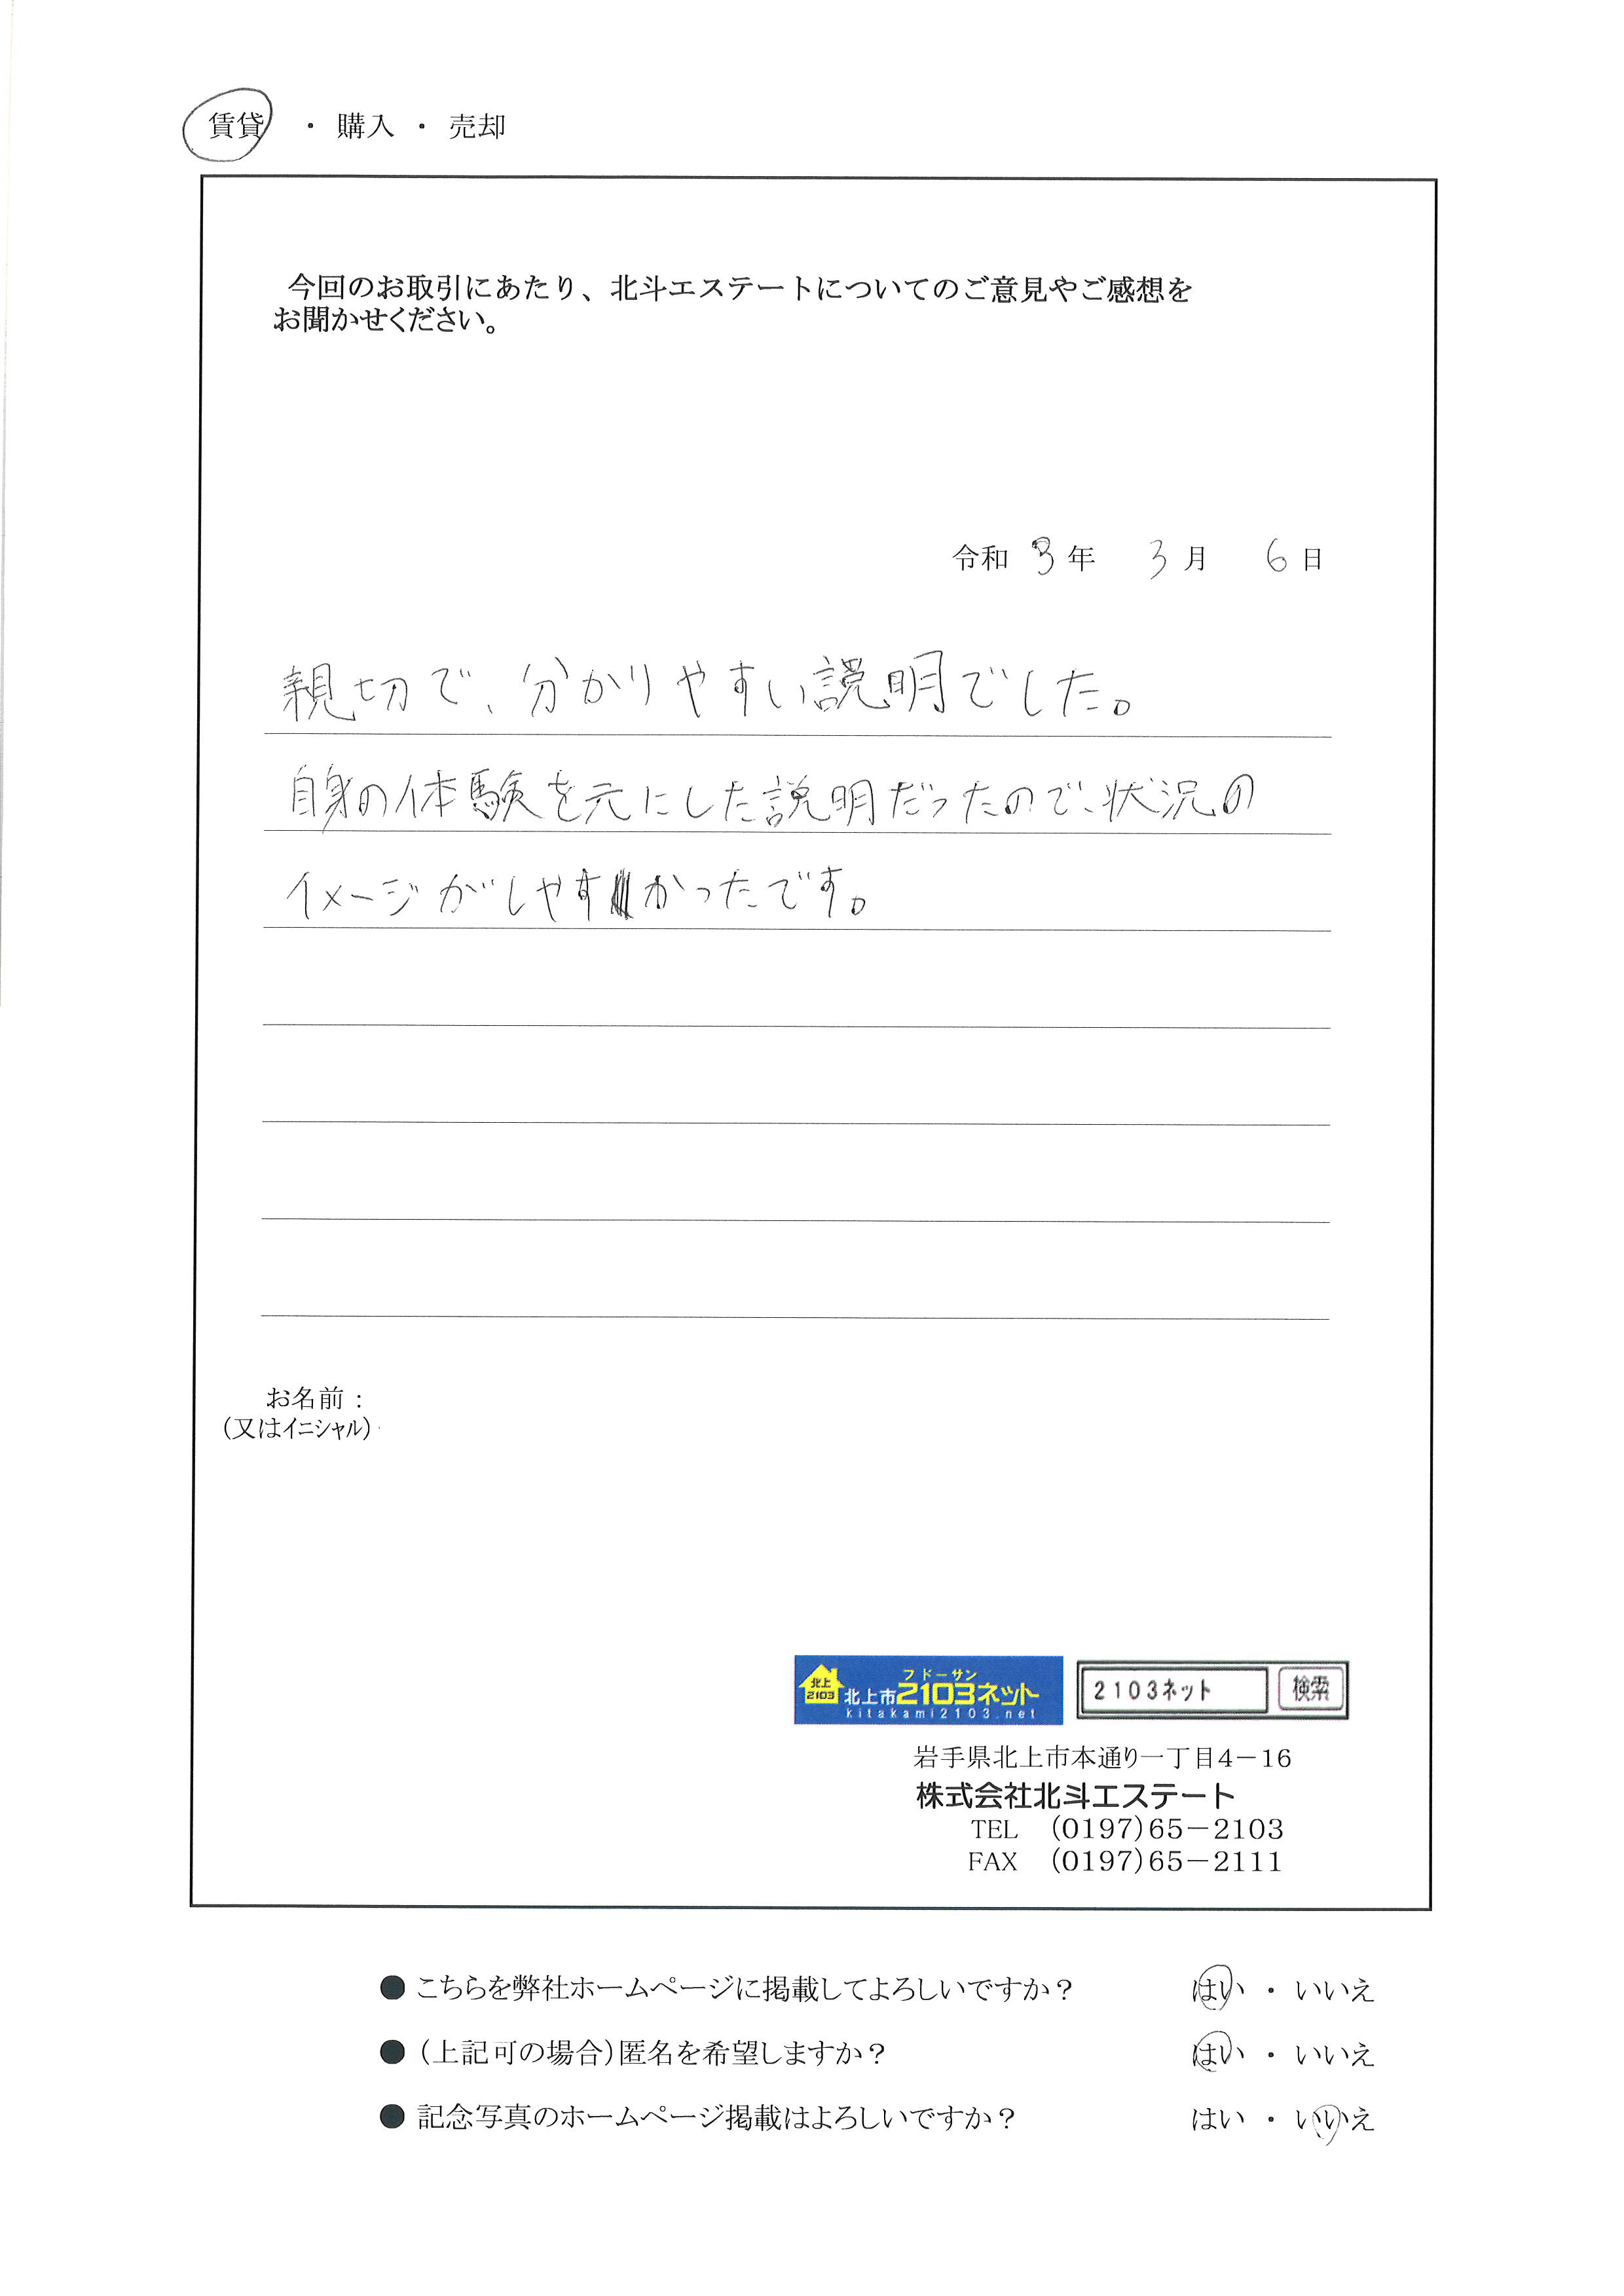 賃貸 ・ 購入 ・ 売却
今回のお取引にあたり、北斗エステートについてのご意見やご感想を
お聞かせください。
令和 3 年 3 月 6 日
親切で、分かりやすい説明でした。
自身の体験を元にした説明だったので、状況の
イメージがしやすかったです。
お名前：
（又はイニシャル）
北上
2103
フドーサン
北上市2103ネット
kitakami2103.net
2103ネット 検索
岩手県北上市本通り一丁目4－16
株式会社北斗エステート
TEL （0197）65－2103
FAX （0197）65－2111
● こちらを弊社ホームページに掲載してよろしいですか？ はい ・ いいえ
● （上記可の場合）匿名を希望しますか？ はい ・ いいえ
● 記念写真のホームページ掲載はよろしいですか？ はい ・ いいえ